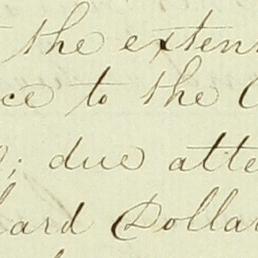 the exten
ce to the
; due atte
ard Dollar